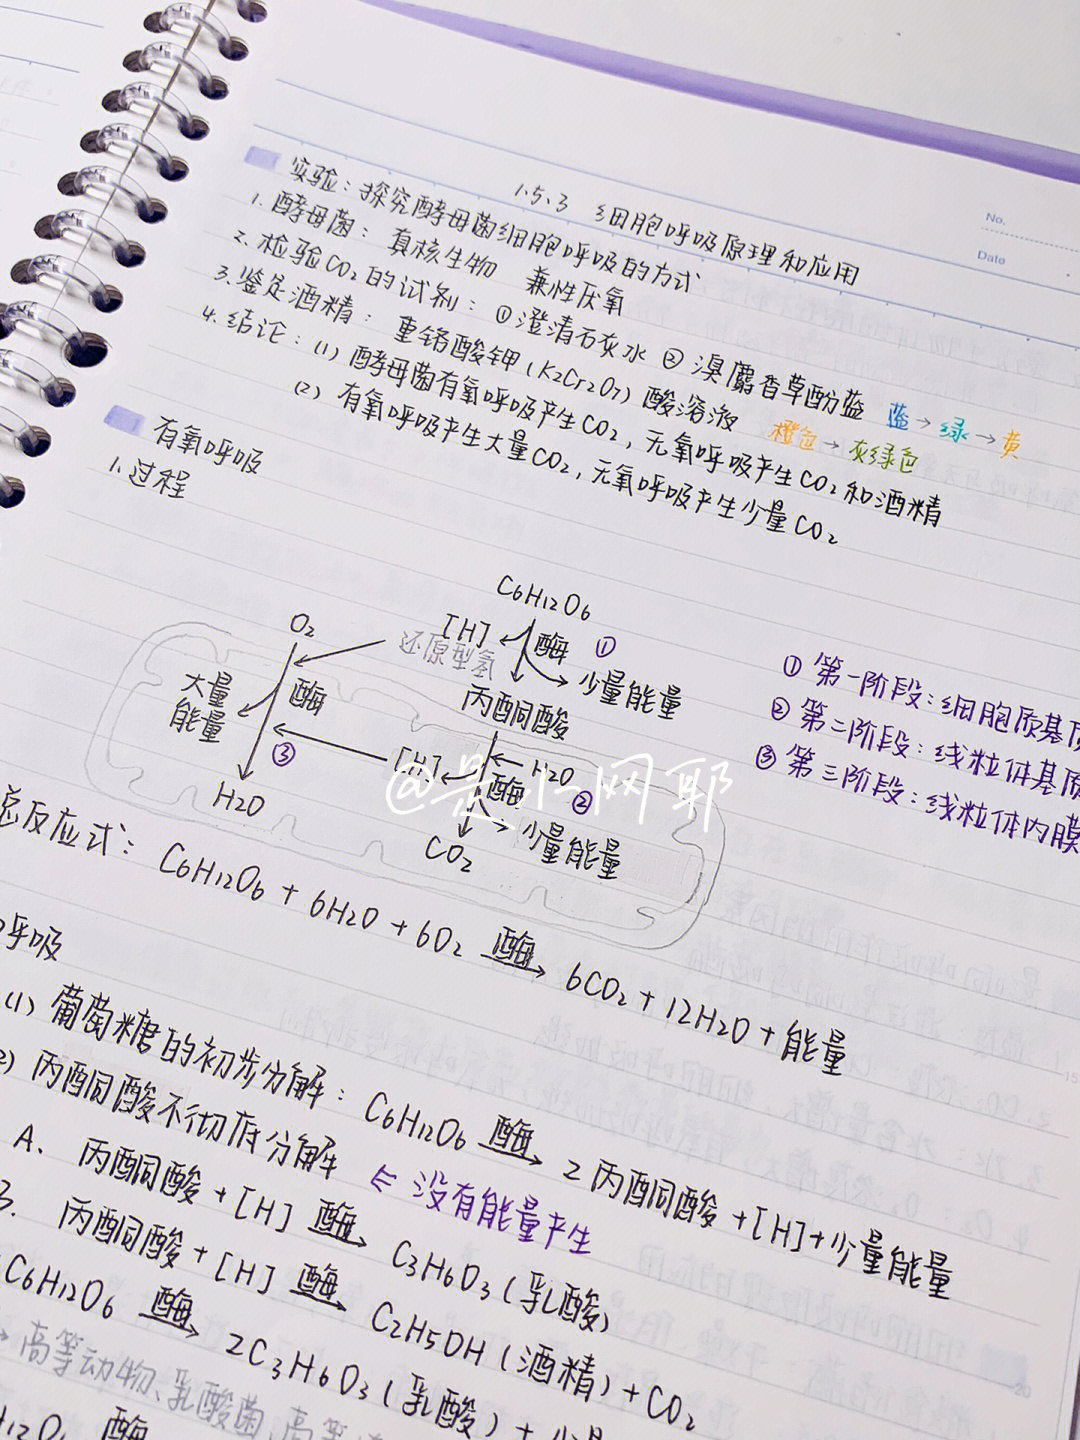 No.
Date
1.5.3 细胞呼吸原理和应用
实验：探究酵母菌细胞呼吸的方式
1.酵母菌：真核生物 兼性厌氧
2.检验CO2的试剂：①澄清石灰水 ②溴麝香草酚蓝 蓝→绿→黄
3.鉴定酒精：重铬酸钾(K2Cr2O7)酸溶液 橙色→灰绿色
4.结论：(1)酵母菌有氧呼吸产生CO2，无氧呼吸产生CO2和酒精
(2)有氧呼吸产生大量CO2，无氧呼吸产生少量CO2
有氧呼吸
1.过程
C6H12O6
O2
[H] 酶 ①
还原型氢
少量能量
大量能量
酶
丙酮酸
③
[H]
H2O
酶 ②
H2O
CO2
少量能量
①第一阶段：细胞质基质
②第二阶段：线粒体基质
③第三阶段：线粒体内膜
@是仁网耶
总反应式：C6H12O6+6H2O+6O2 酶→ 6CO2+12H2O+能量
呼吸
(1)葡萄糖的初步分解：C6H12O6 酶→ 2丙酮酸+[H]+少量能量
2)丙酮酸不彻底分解 ⇐没有能量产生
A. 丙酮酸+[H] 酶→ C3H6O3(乳酸)
B. 丙酮酸+[H] 酶→ C2H5OH(酒精)+CO2
C6H12O6 酶→ 2C3H6O3(乳酸)+少量
→高等动物、乳酸菌、高等
H12O6 酶
15
20